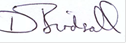 D Birdsall